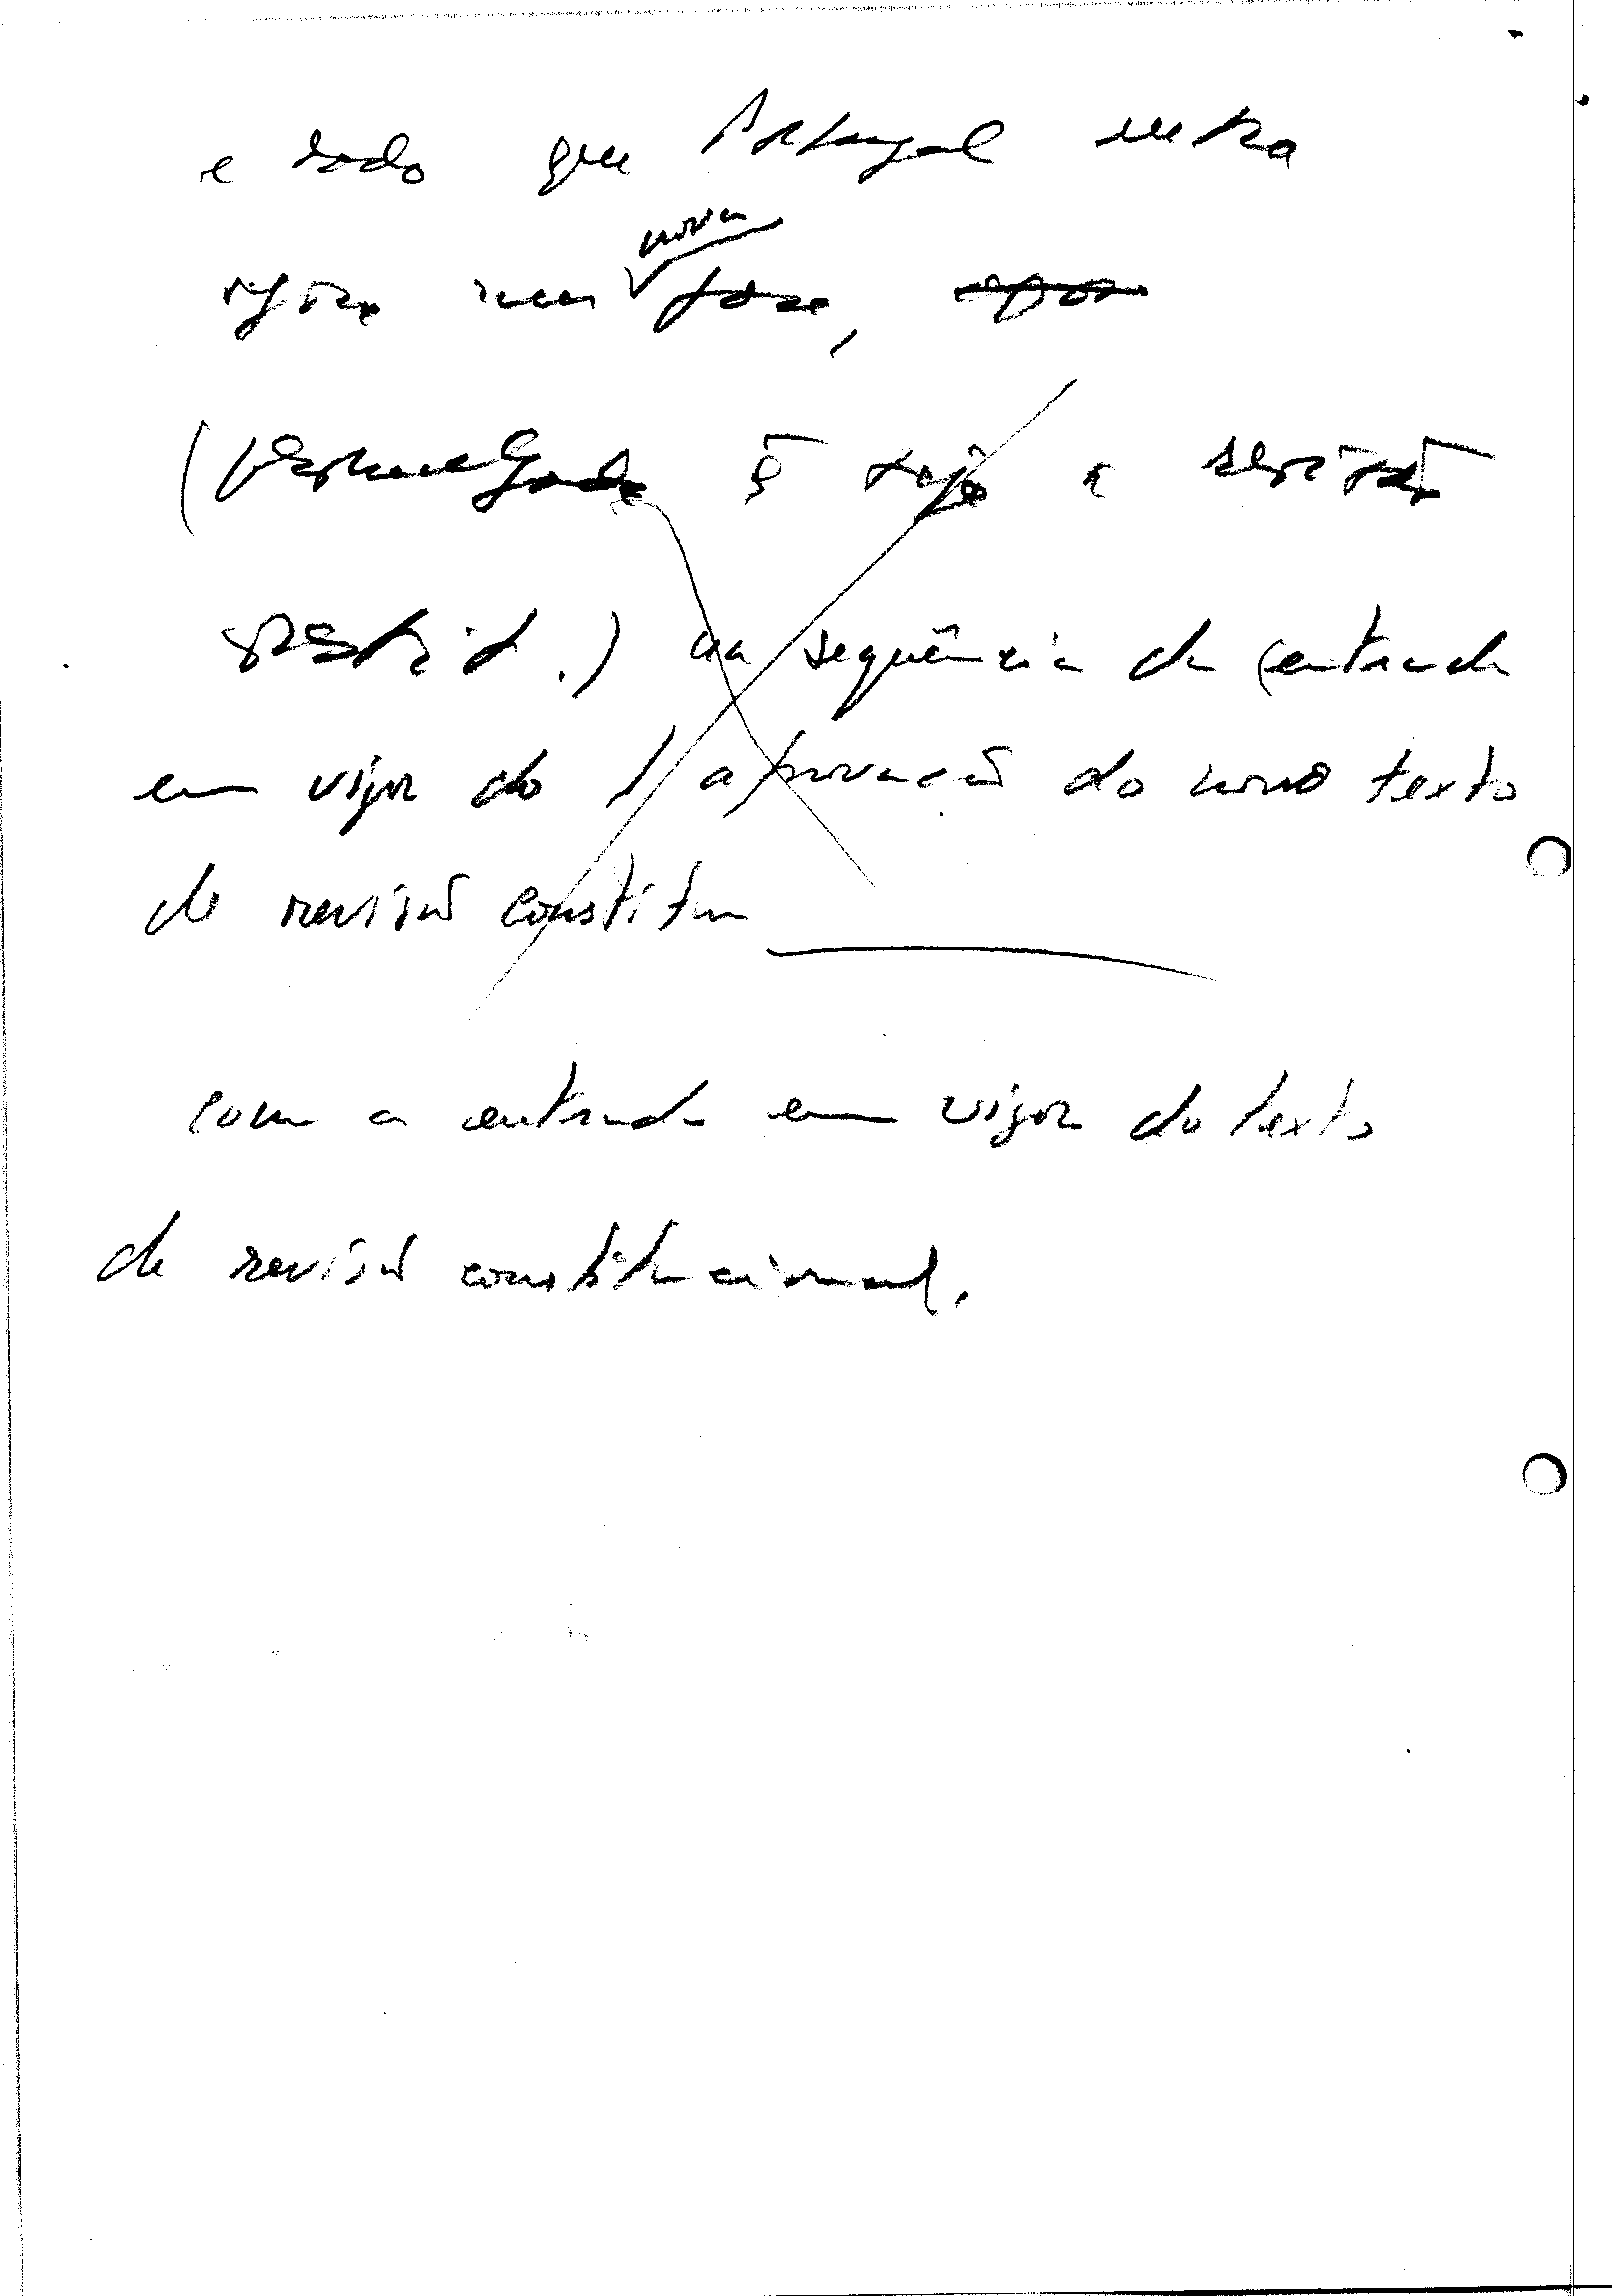 e dado que Portugal entra
nova
agora numa fase, após
( promulgada q haja a revisão
constit.) na sequência da (entrada
em vigor do / aprovação do novo texto
de revisão constitu
com a entrada em vigor do texto
de revisão constitucional.